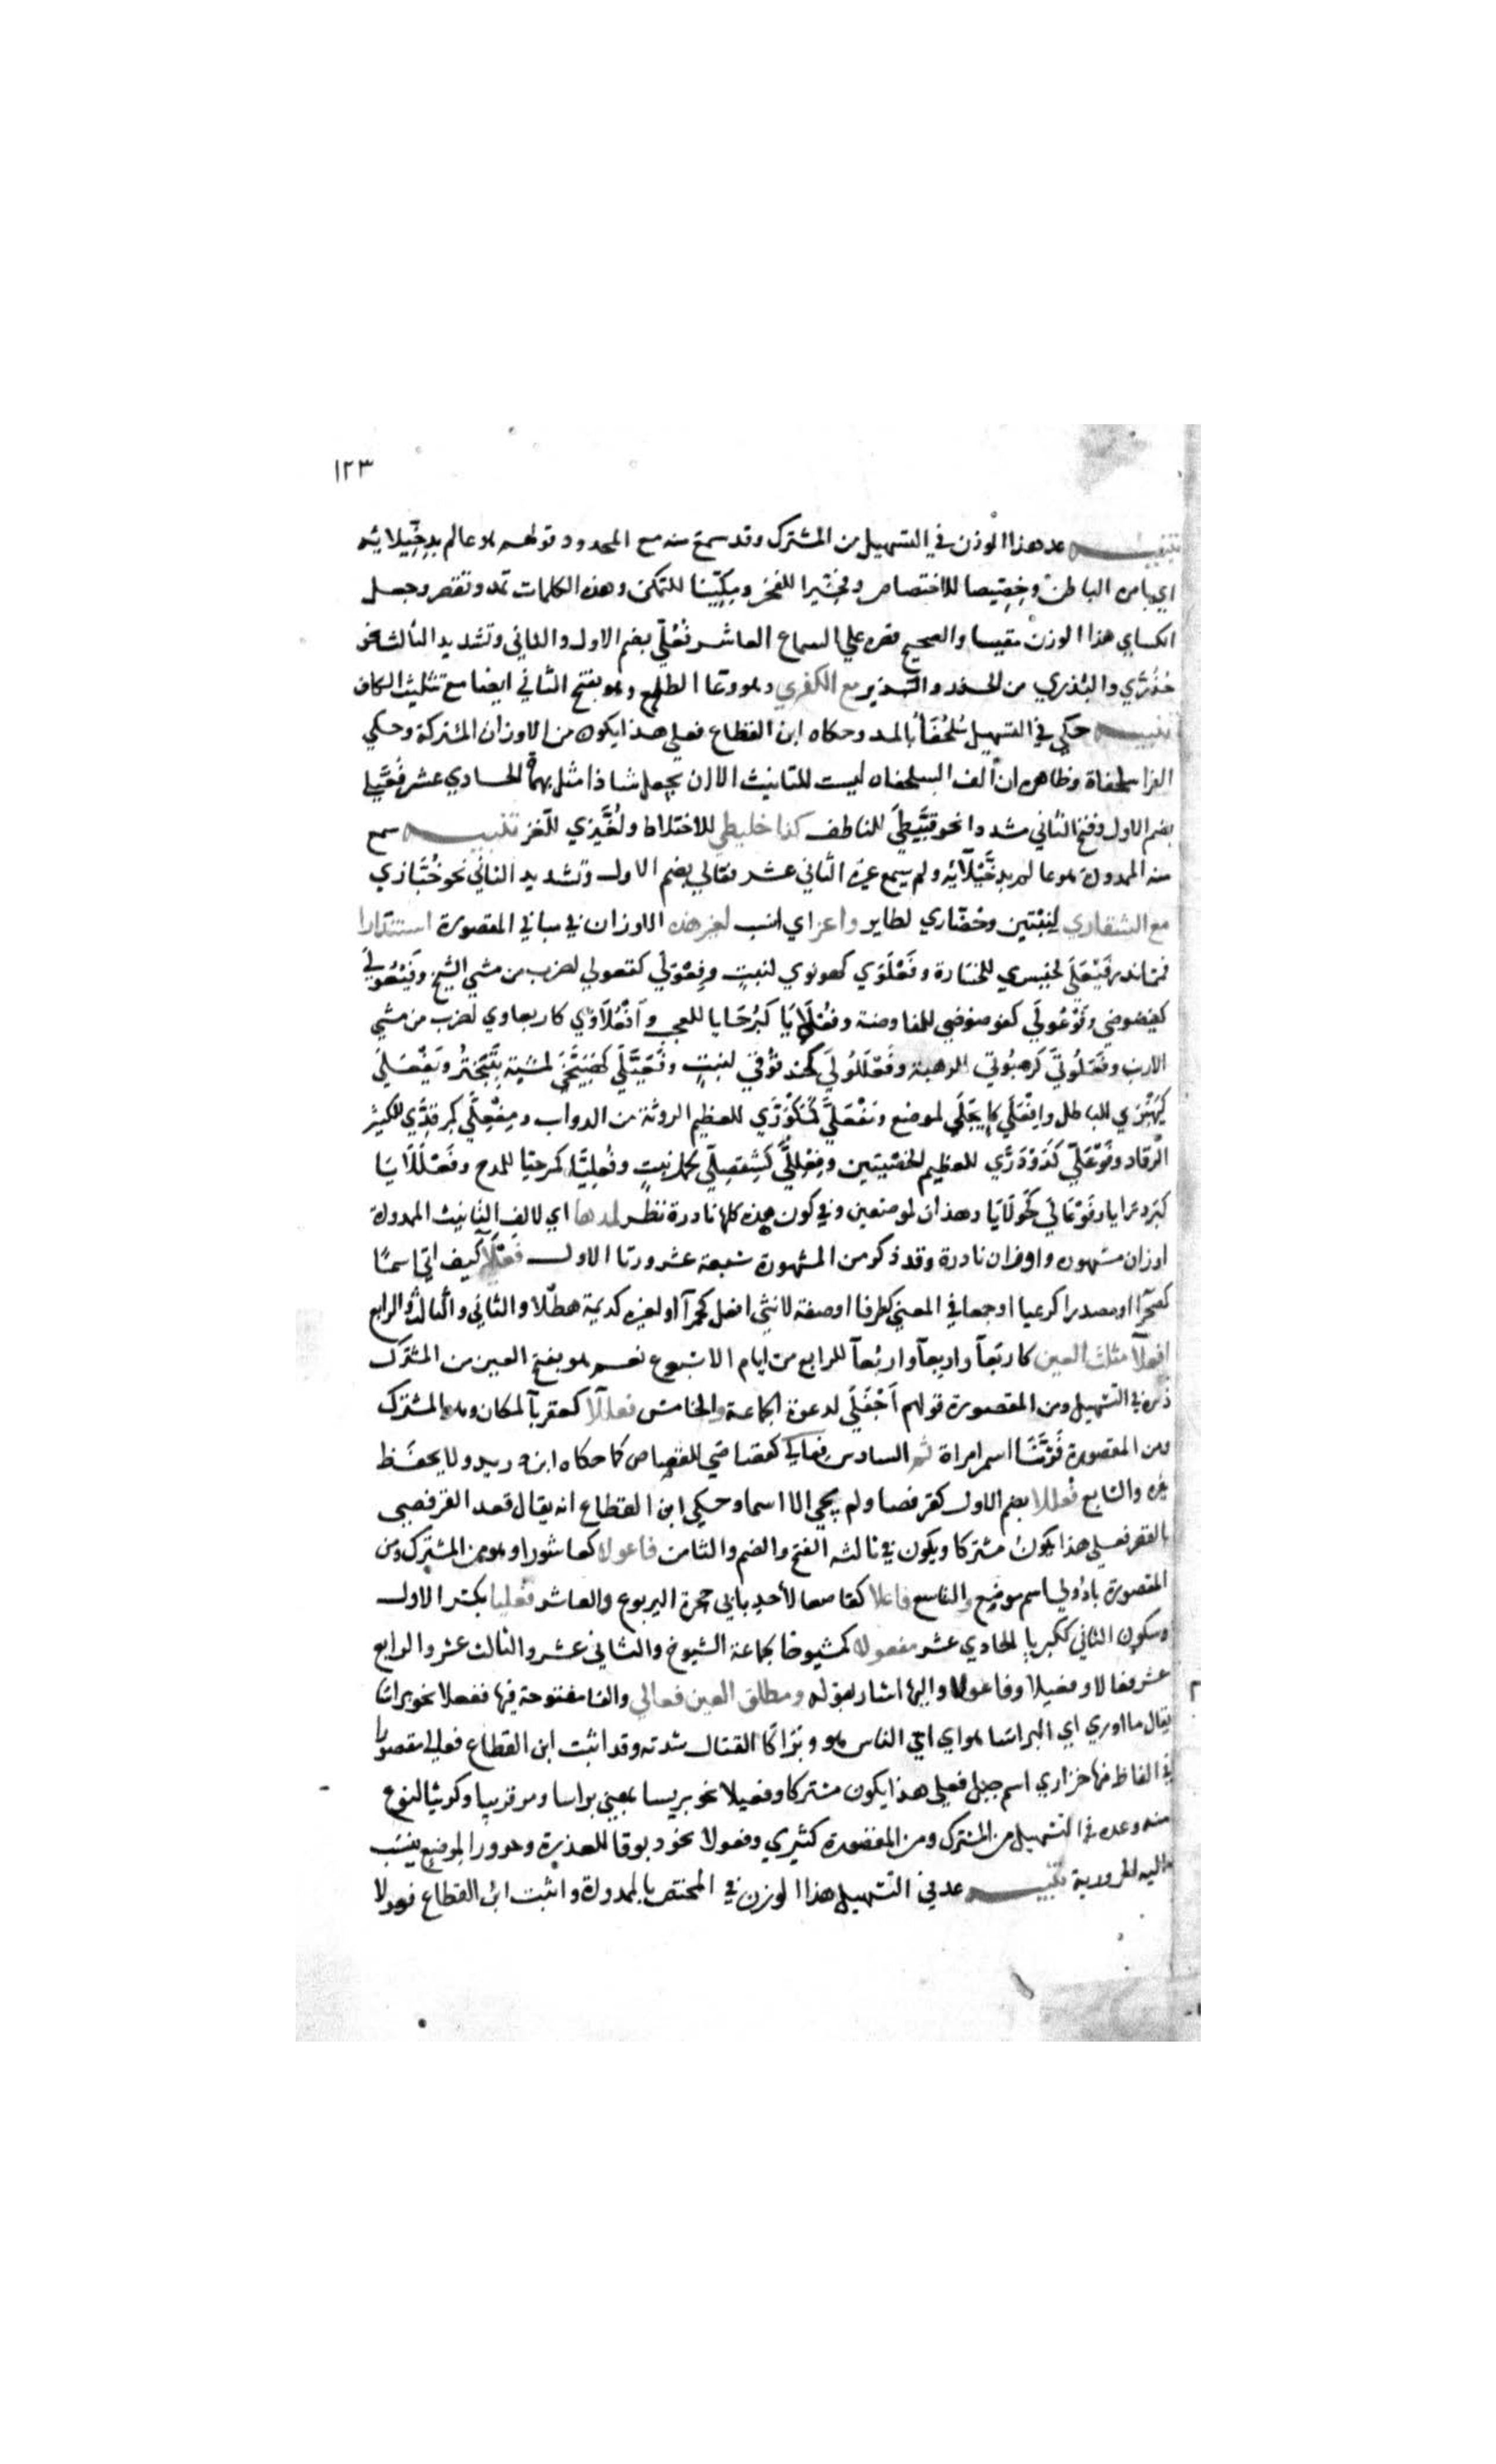 ١٢٣
تنبيه عد هذا الوزن في التسهيل من المشترك وقد سمع منه مع الممدود قولهم هو عالم بدخيلائه
اي بامره الباطن وخصيصا للاختصاص وفخيرا للفخر ومكينا للتمكن وهذه الكلمات تمد وتقصر وجعل
الكساي هذا الوزن مقيسا والصحيح قصره علي السماع العاشر فُعُلَّي بضم الاول والثاني وتشديد الثالث نحو
حُذُرَّي والبُذري من الحذر والتبذير مع الكفري وهو وعا الطلع وهو بفتح الثاني ايضا مع تثليث الكاف
تنبيه حكي في التسهيل سُلحُفَاُ بالمد وحكاه ابن القطاع فعلي هذا يكون من الاوزان المشتركة وحكي
الفرا سلحفاة وظاهره ان الف السلحفاه ليست للتانيث الا ان يجعل شاذا مثل بهماة الحادي عشر فُعَّيلي
بضم الاول وفتح الثاني مشددا نحو قُبَّيطَي للناطف كذا خليطي للاختلاط ولُغَّيزي للغز تنبيه سمع
منه الممدود هو عالم بدخَّيلآئه ولم يسمع غيره الثاني عشر فعالي بضم الاول وتشديد الثاني نحو خُبَّازي
مع الشقاري لنبتين وخضّاري لطاير واعز اي انسب لغير هذه الاوزان في مباني المقصورة استندارا
فمما ندر فَيْعَلَي لخيسري للخسارة وفَعْلَوَي كهرنوي لنبت وفِعْوَلَي كقعولي لضرب من مشي الشيخ وفَيْعُولَي
كفيضوضي وفَوْعُولَي كفوضوضي للمفاوضة وفُعَلَايَا كبُرَحَايا للعجب وأفْعُلَاوَي كاربعاوي لضرب من مشي
الارنب وفَعَلُوتَي كرهبُوتي للرهبة وفَعْلَلُولَي كحندقوقي لنبت وفَعَيَّلَي كهَبَيَّخَي لمشية بتبختر ويَفْعَلَّي
كيَهْيَرَّي للباطل وإفْعَلَي كإيجَلَي لموضع ومَفْعَلَّي كمَكْوَرَّي للعظيم الروثة من الدواب ومِفْعِلَّي كمِرقِدَّي للكثير
الرقاد وفَوْعَلَّي كدَوْدَرَّي للعظيم الخصيتين وفِعْلِلَّي كشِفصِلَّي لحمل نبت وفُعليَّا كمرحيا للمدح وفَعْلَلَايَا
كبردرايا وفَوْعَالَي كحَوْلَايَا وهذان لموضعين وفي كون هذه كلها نادرة نظر لمدها اي لالف التانيث الممدودة
اوزان مشهوره واوزان نادرة وقد ذكر من المشهورة سبعة عشر وزنا الاول فَعْلَآ كيف اتي اسمًا
كصحرآ او مصدرا كرغبا او جمعا في المعني كطرفا او صفة لانثي افعل كحمرآ او لغيره كديمة هطلا والثاني والثالث والرابع
افعلآ مثلث العين كاربَعآ واربِعآ واربُعآ للرابع من ايام الاسبوع نعم هو بفتح العين من المشترك
ذكره في التسهيل ومن المقصورة قولهم أجْفَلَي لدعوة الجماعة والخامس فعللآ كعقربآ لمكان وهو المشترك
ومن المقصورة فَرْتَنَا اسم امراة ثم السادس فعالا كقصاصي للقصاص كما حكاه ابن دريد ولا يحفظ
غيره والسابع فعللا بضم الاول كقرفصا ولم يجي الا اسما وحكي ابن القطاع انه يقال قعد القرفصي
بالقصر فعلي هذا يكون مشتركا ويكون في ثالثه الفتح والضم والثامن فاعولا كعاشورا وهو من المشترك ومن
المقصورة بادُولي اسم موضع والتاسع فاعلا كقاصعا لاحد بابي جحرة اليربوع والعاشر فعليا بكسر الاول
وسكون الثاني ككبريا الحادي عشر مفعولا كمشيوخا لجماعة الشيوخ والثاني عشر والثالث عشر والرابع
عشر فعالا وفعيلا وفاعولا واليها اشار بقوله ومطلق العين فعالي والفا مفتوحة فيها ففعلا نحو براسا
يقال ما ادري اي البراسا هو اي اي الناس هو وبَرَاكَا القتال شدته وقد اثبت ابن القطاع فعالي مقصورا
في الفاظ منها خزازي اسم جبل فعلي هذا يكون مشتركا وفعيلا نحو بريسا بمعني براسا ومر قريبا وكريثا لنوع
منه وعده في التسهيل من المشترك ومن المقصورة كثيري وفعولا نحو دبوقا للعذرة وحرورا لموضع ينسب
اليه الحرورية تنبيه عد في التسهيل هذا الوزن في المختص بالممدودة واثبت ابن القطاع فعولا